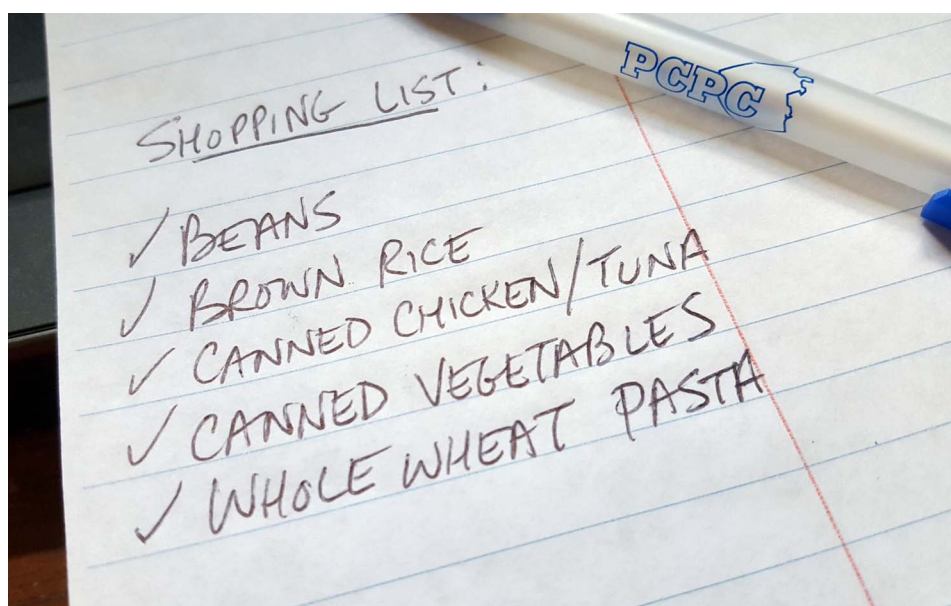 PCPC
SHOPPING LIST:
✓ BEANS
✓ BROWN RICE
✓ CANNED CHICKEN/TUNA
✓ CANNED VEGETABLES
✓ WHOLE WHEAT PASTA